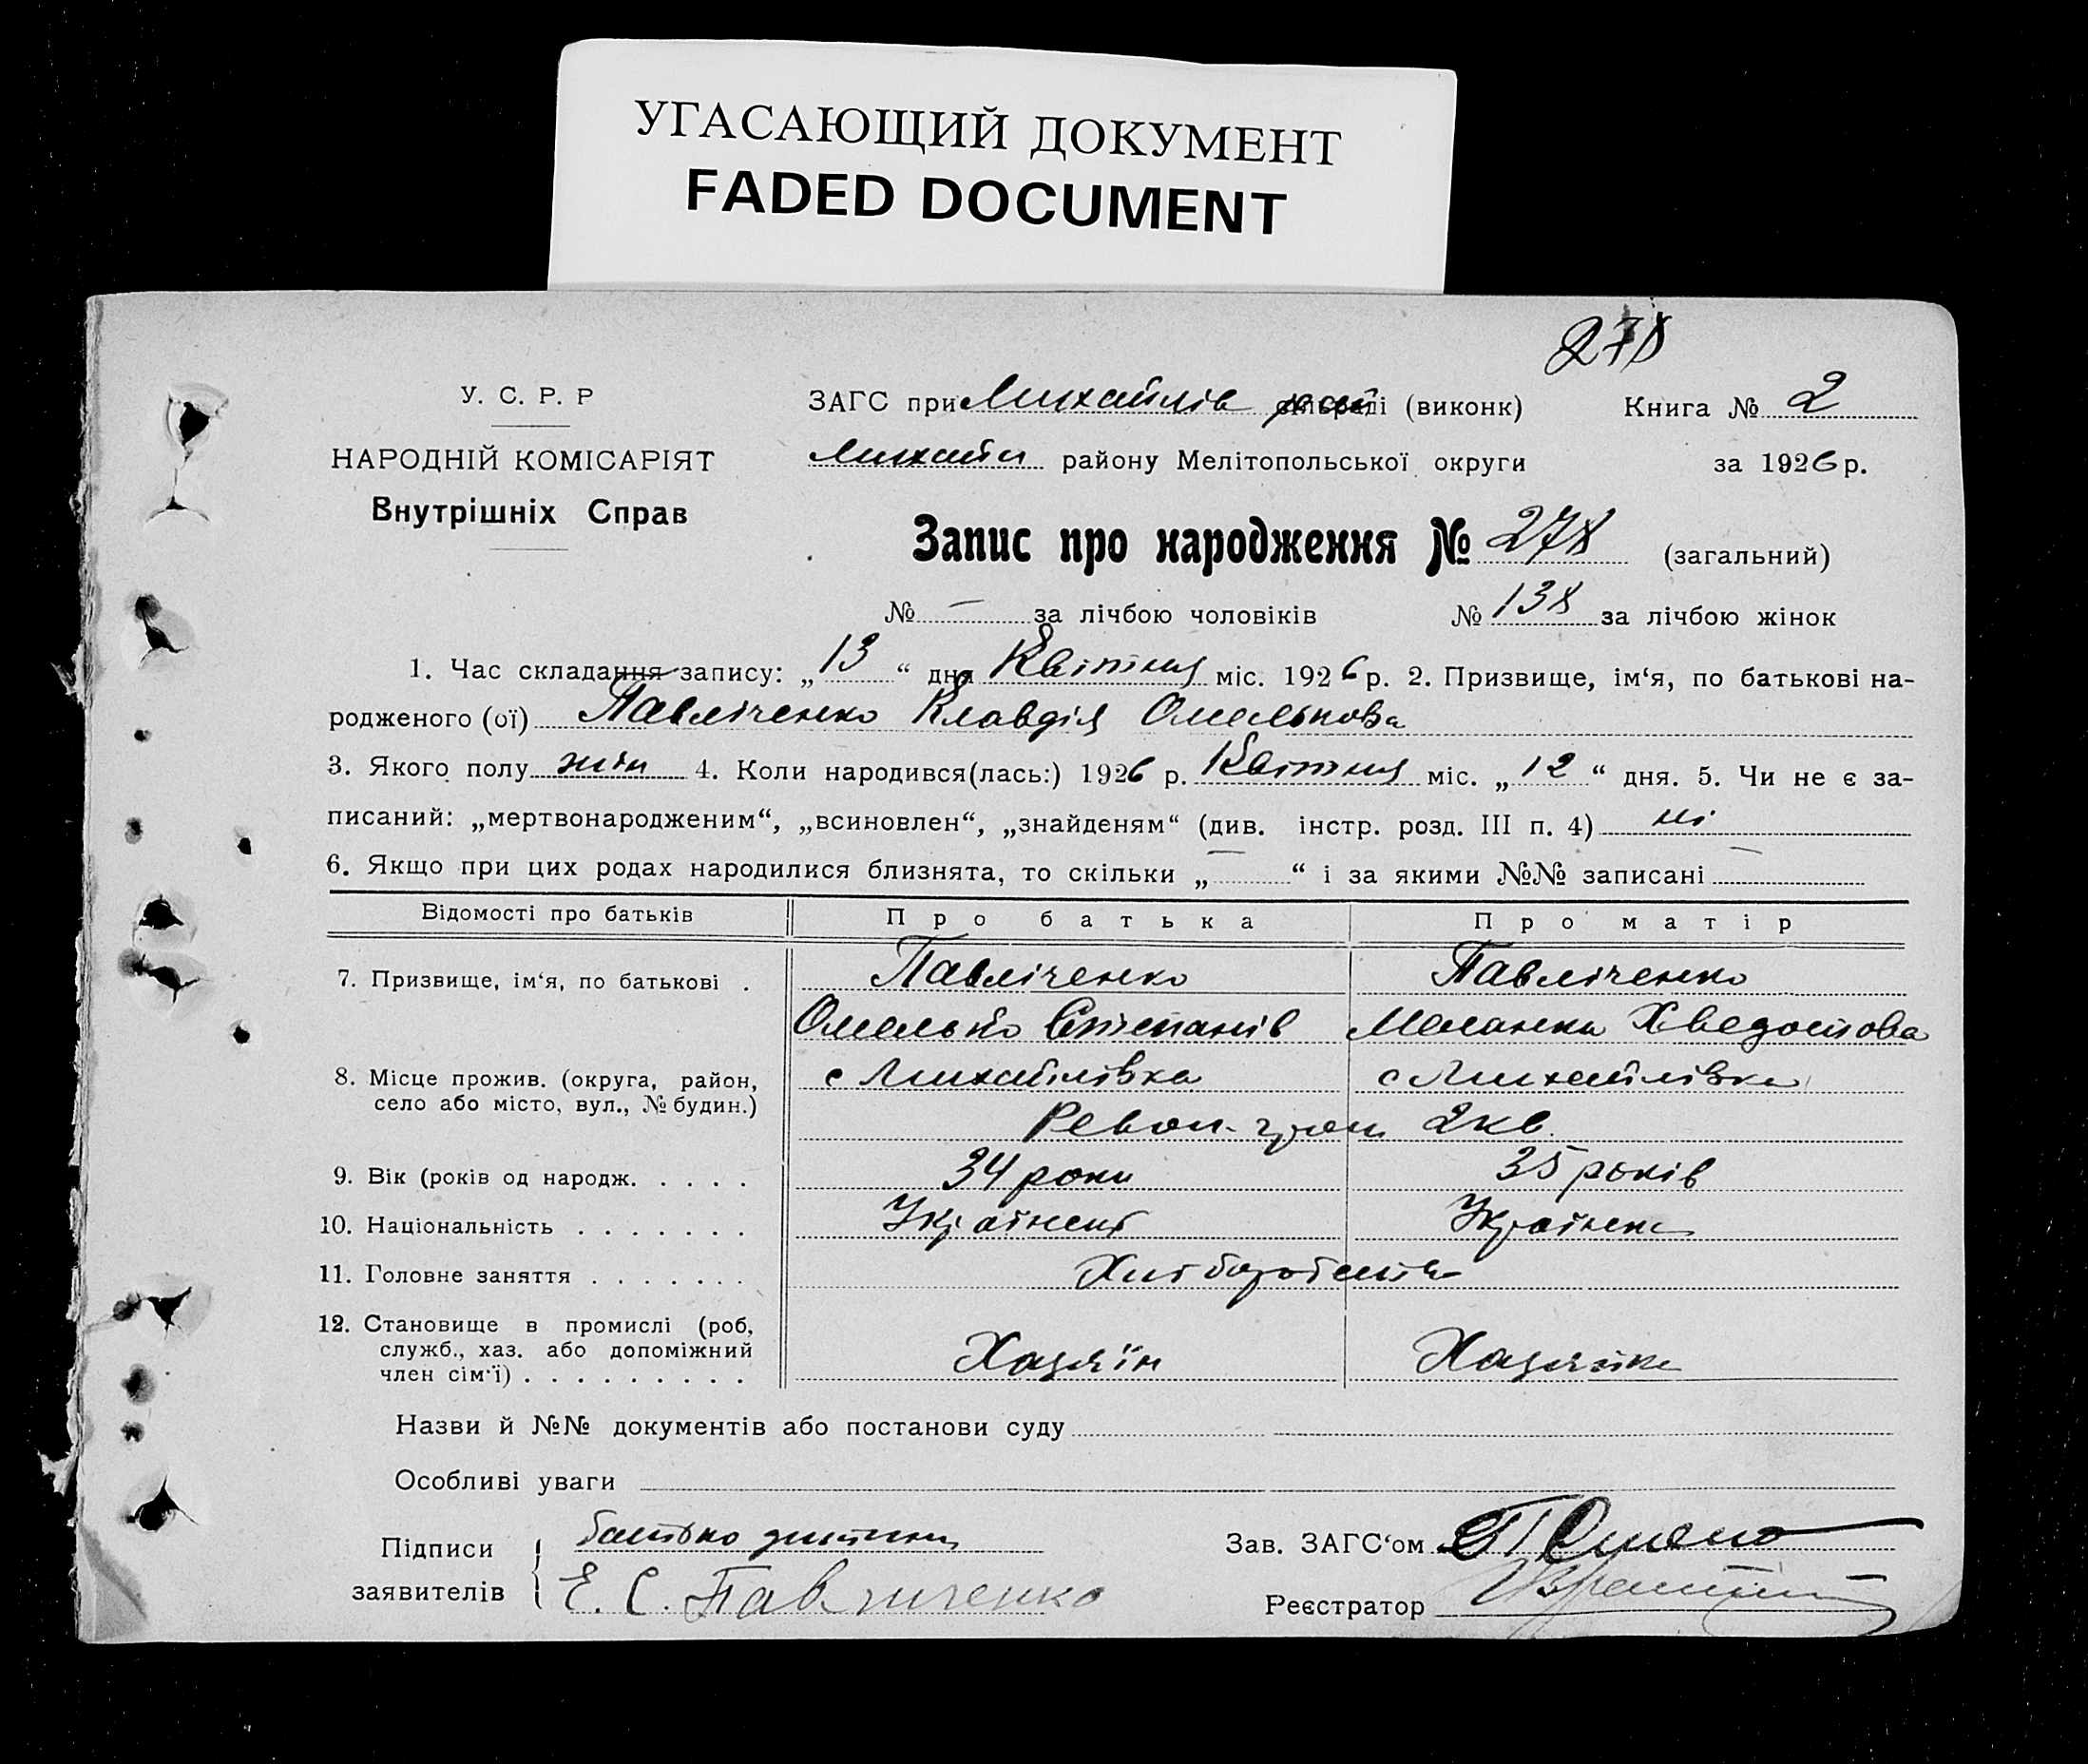 УГАСАЮЩИЙ ДОКУМЕНТ
FADED DOCUMENT
278
У. С. Р. Р
НАРОДНІЙ КОМІСАРІЯТ
Внутрішніх Справ
ЗАГС при Михайлів рай (виконк)
Книга № 2
Михайл району Мелітопольської округи
за 1926 р.
Запис про народження № 278 (загальний)
№ — за лічбою чоловіків № 138 за лічбою жінок
1. Час складання запису: „13“ дня Квітня міс. 1926 р. 2. Призвище, ім‘я, по батькові на-
родженого (ої) Павліченко Клавдія Омелькова
3. Якого полу жін 4. Коли народився(лась:) 1926 р. Квітня міс. „12“ дня. 5. Чи не є за-
писаний: „мертвонародженим“, „всиновлен“, „знайденям“ (див. інстр. розд. III п. 4) ні
6. Якщо при цих родах народилися близнята, то скільки „—“ і за якими №№ записані —
Відомості про батьків Про батька Про матір
7. Призвище, ім‘я, по батькові . Павліченко Павліченко
Омелько Степанів Меланка Хведотова
8. Місце прожив. (округа, район, с Михайлівка с Михайлівка
село або місто, вул., № будин.) Револ. 2 кв.
9. Вік (років од народж. . . . . 34 роки 35 років
10. Національність . . . . . . . Українець Українка
11. Головне заняття . . . . . . .
12. Становище в промислі (роб,
служб., хаз. або допоміжний Хазяїн Хазяйка
член сім‘ї) . . . . . . . . .
Назви й №№ документів або постанови суду
Особливі уваги
Підписи батько дитини
заявителів Е. С. Павличенко
Зав. ЗАГС‘ом
Реєстратор